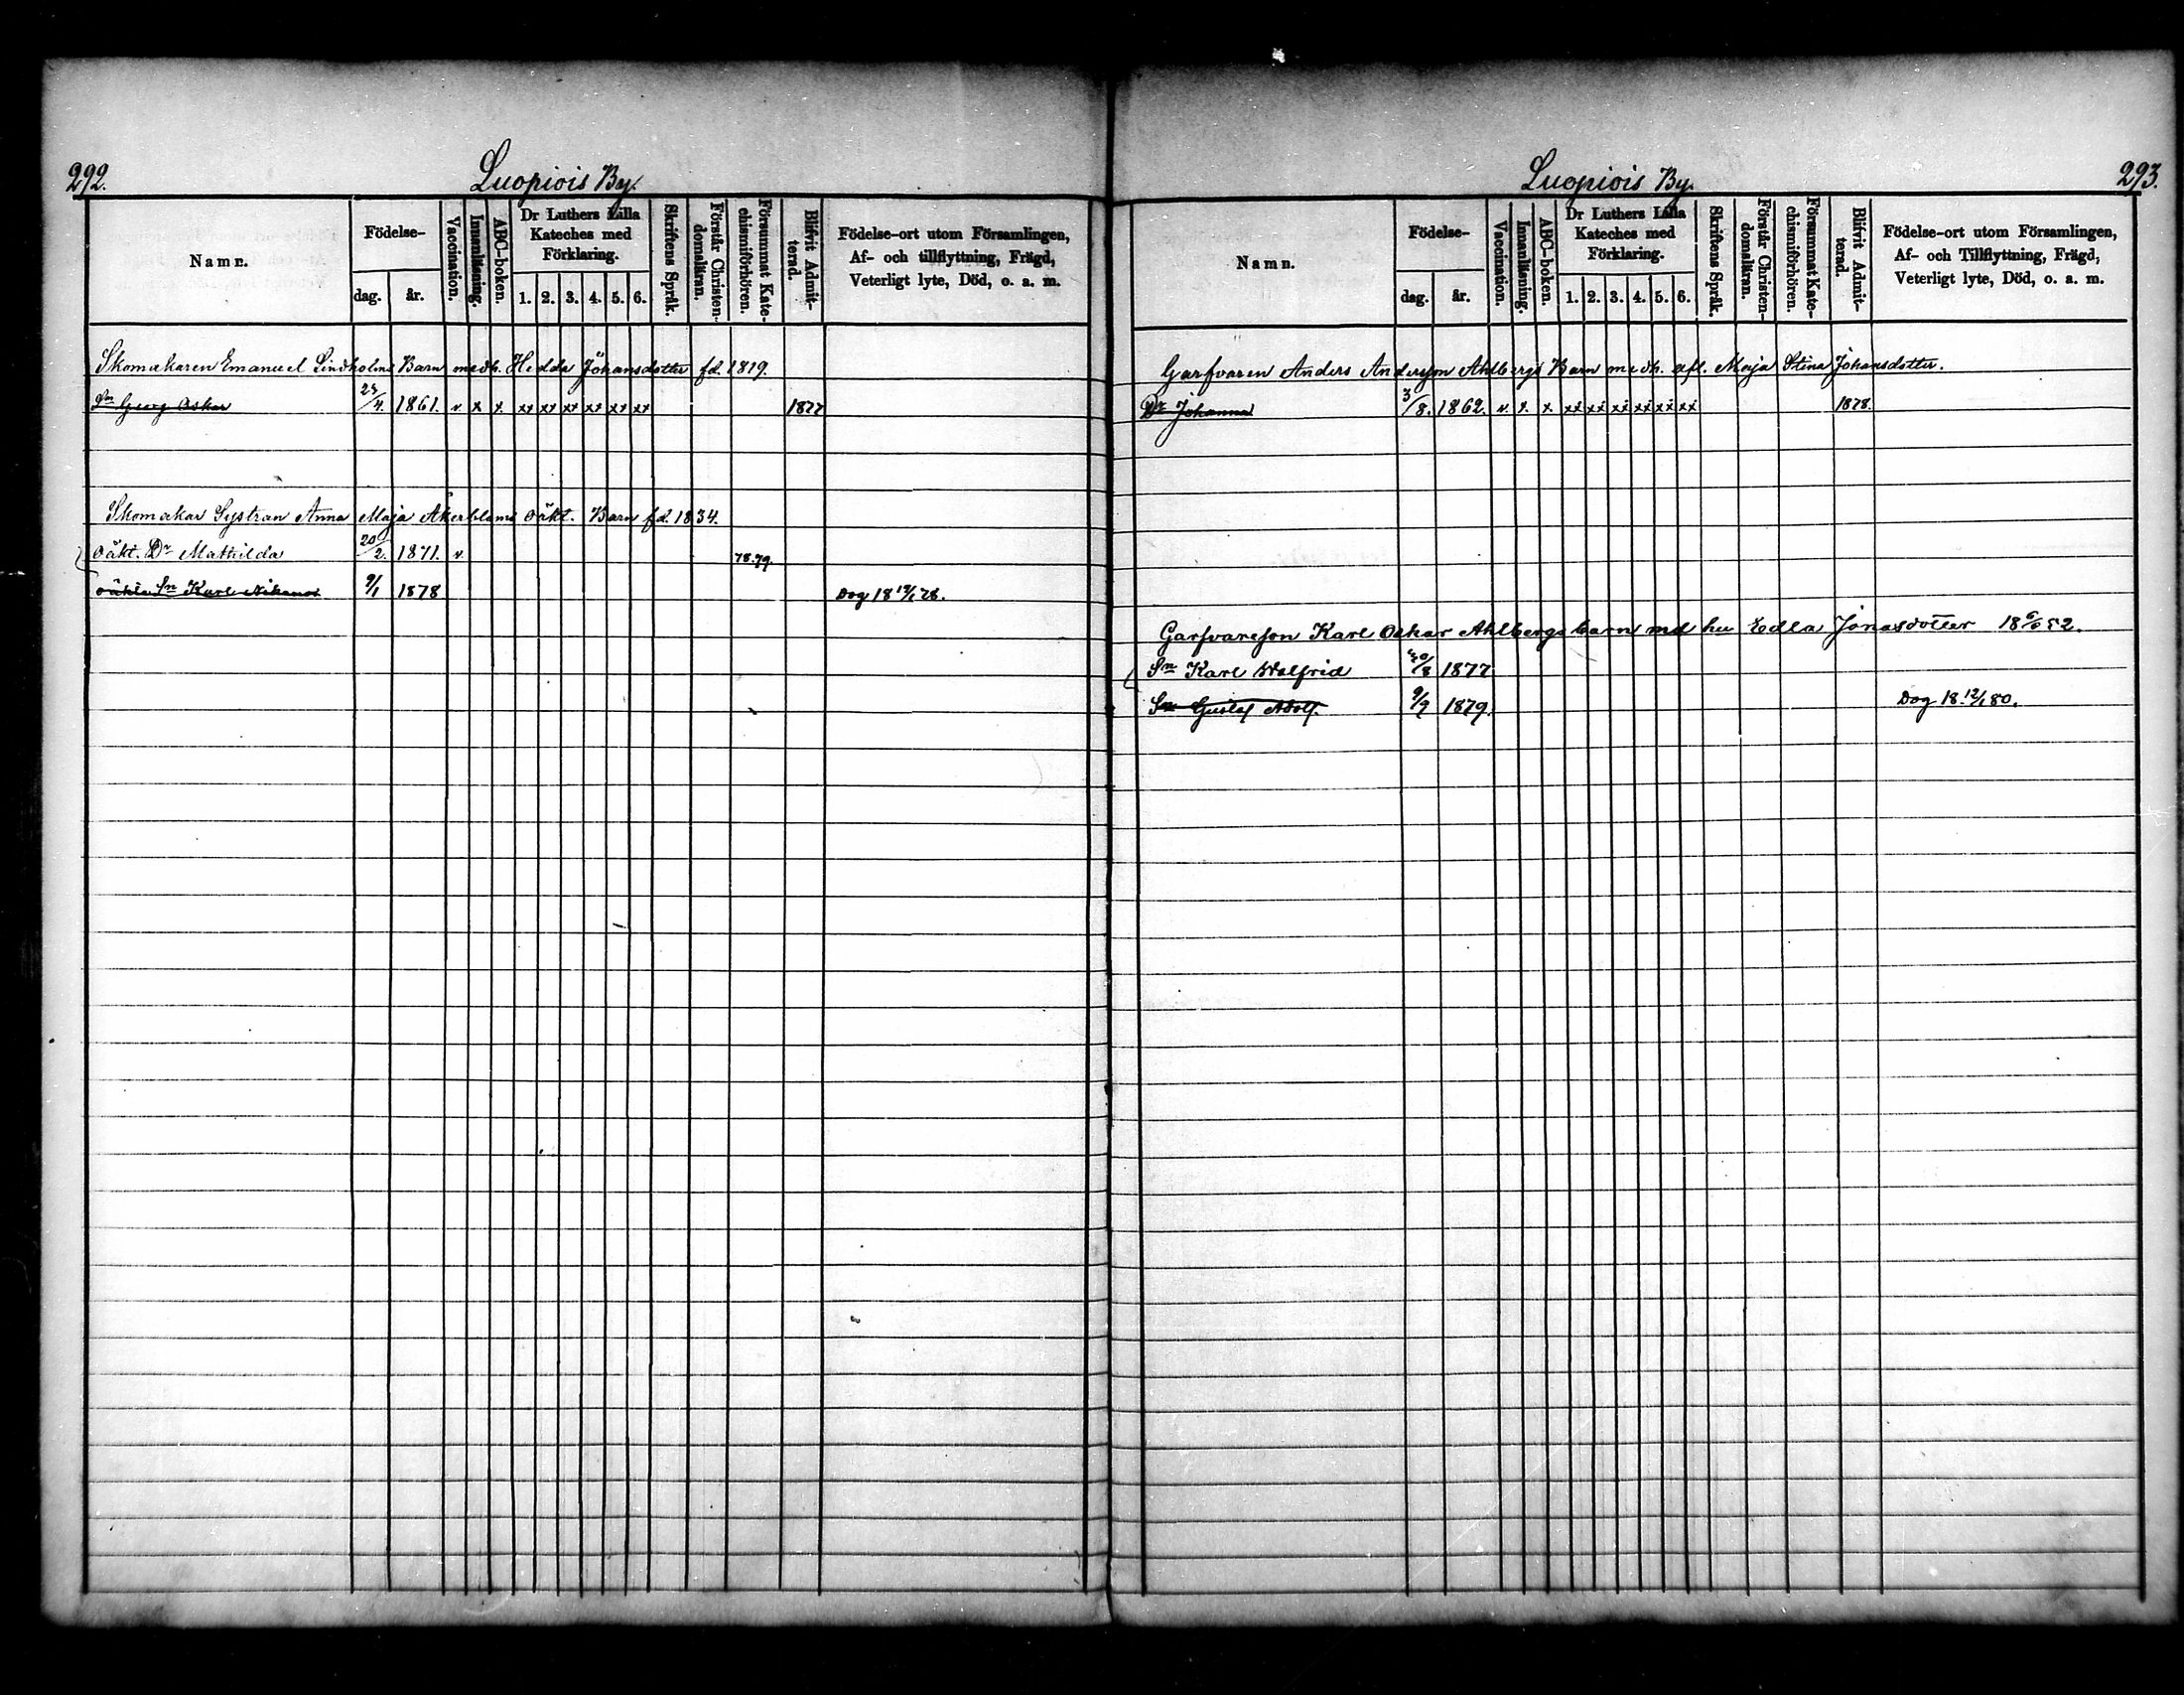 292.
Luopiois By.
Namn.
Födelse-
dag.
år.
Vaccination.
Innanläsning.
ABC-boken.
Dr Luthers Lilla Kateches med Förklaring.
1. 2. 3. 4. 5. 6.
Skriftens Språk.
Förstår Christen-domsläran.
Försummat Kate-chismiförhören.
Blifvit Admit-terad.
Födelse-ort utom Församlingen,
Af- och tillflyttning, Frägd,
Veterligt lyte, Död, o. a. m.
Skomakaren Emanuel Lindholms Barn medh. Hedda Johansdotter fd. 1819.
Sn Georg Oskar 23/4. 1861. v. x x. xx xx xx xx xx xx 1877
Skomakar Systran Anna Maja Åkerbloms oäkt. Barn fd. 1834.
oäkt. Dr Mathilda 20/2. 1871. v. 78.79.
oäkta Sn Karl Nikanor 9/1 1878 Dog 18 19/1 78.
293.
Luopiois By.
Namn.
Födelse-
dag.
år.
Vaccination.
Innanläsning.
ABC-boken.
Dr Luthers Lilla Kateches med Förklaring.
1. 2. 3. 4. 5. 6.
Skriftens Språk.
Förstår Christen-domsläran.
Försummat Kate-chismiförhören.
Blifvit Admit-terad.
Födelse-ort utom Församlingen,
Af- och Tillflyttning, Frägd,
Veterligt lyte, Död, o. a. m.
Garfvaren Anders Andersson Ahlbergs Barn medh. afl. Maja Stina Johansdotter.
Dr Johanna 3/8. 1862. v. x. x. xx xx xx xx xx xx 1878.
Garfvareson Karl Oskar Ahlbergs barn md hu Edla Jonasdotter 18 52.
Sn Karl Walfrid /8 1877
Sn Gustaf Adolf. 9/9 1879. Dog 18 12/1 80.